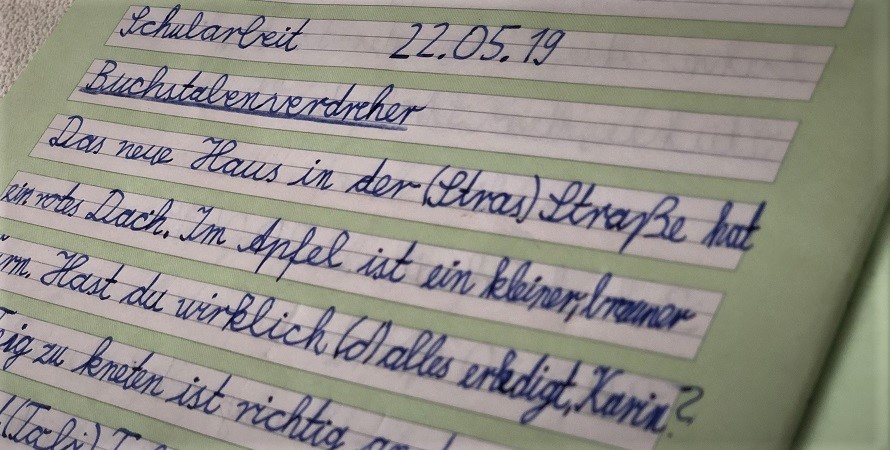 Schularbeit 22.05.19
Buchstabenverdreher
Das neue Haus in der (Stras) Straße hat
ein rotes Dach. Im Apfel ist ein kleiner, brauner
rm. Hast du wirklich (d) alles erledigt, Karin?
ig zu kneten ist richtig